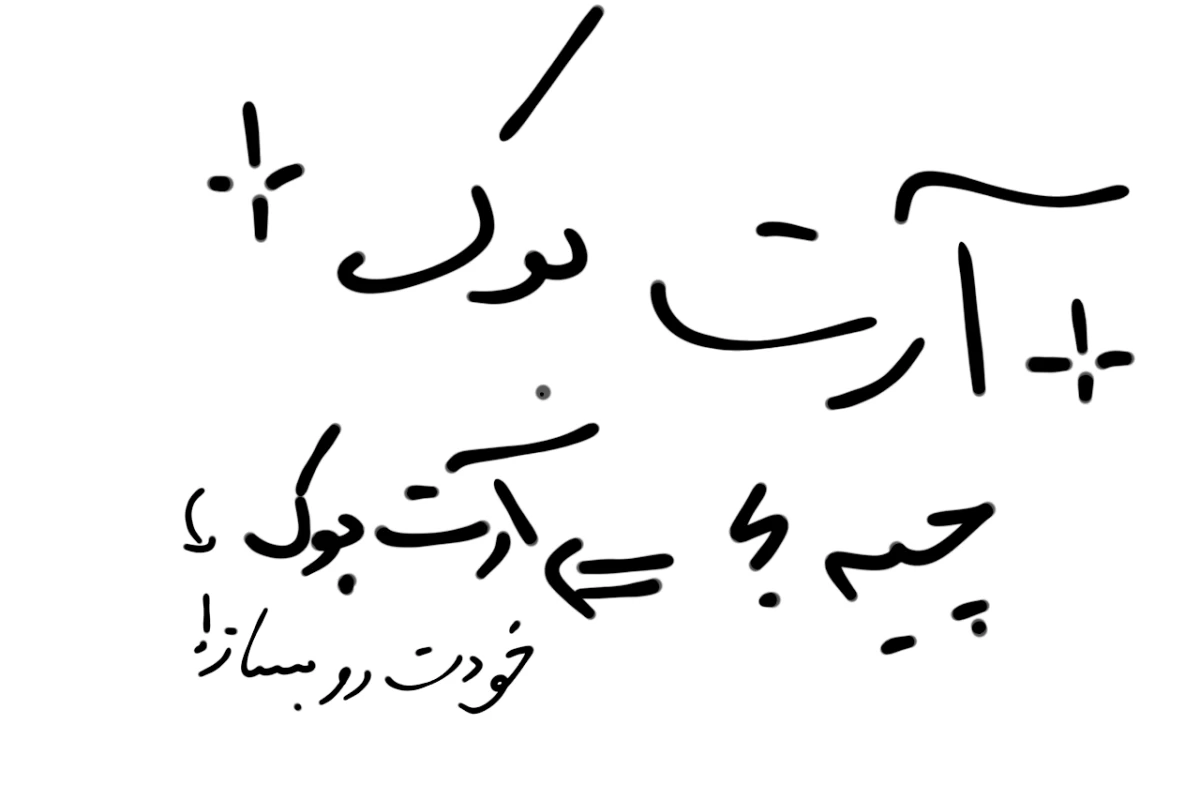 آرت بوک
چیه؟ ⇐ آرت بوک
خودت رو بساز!